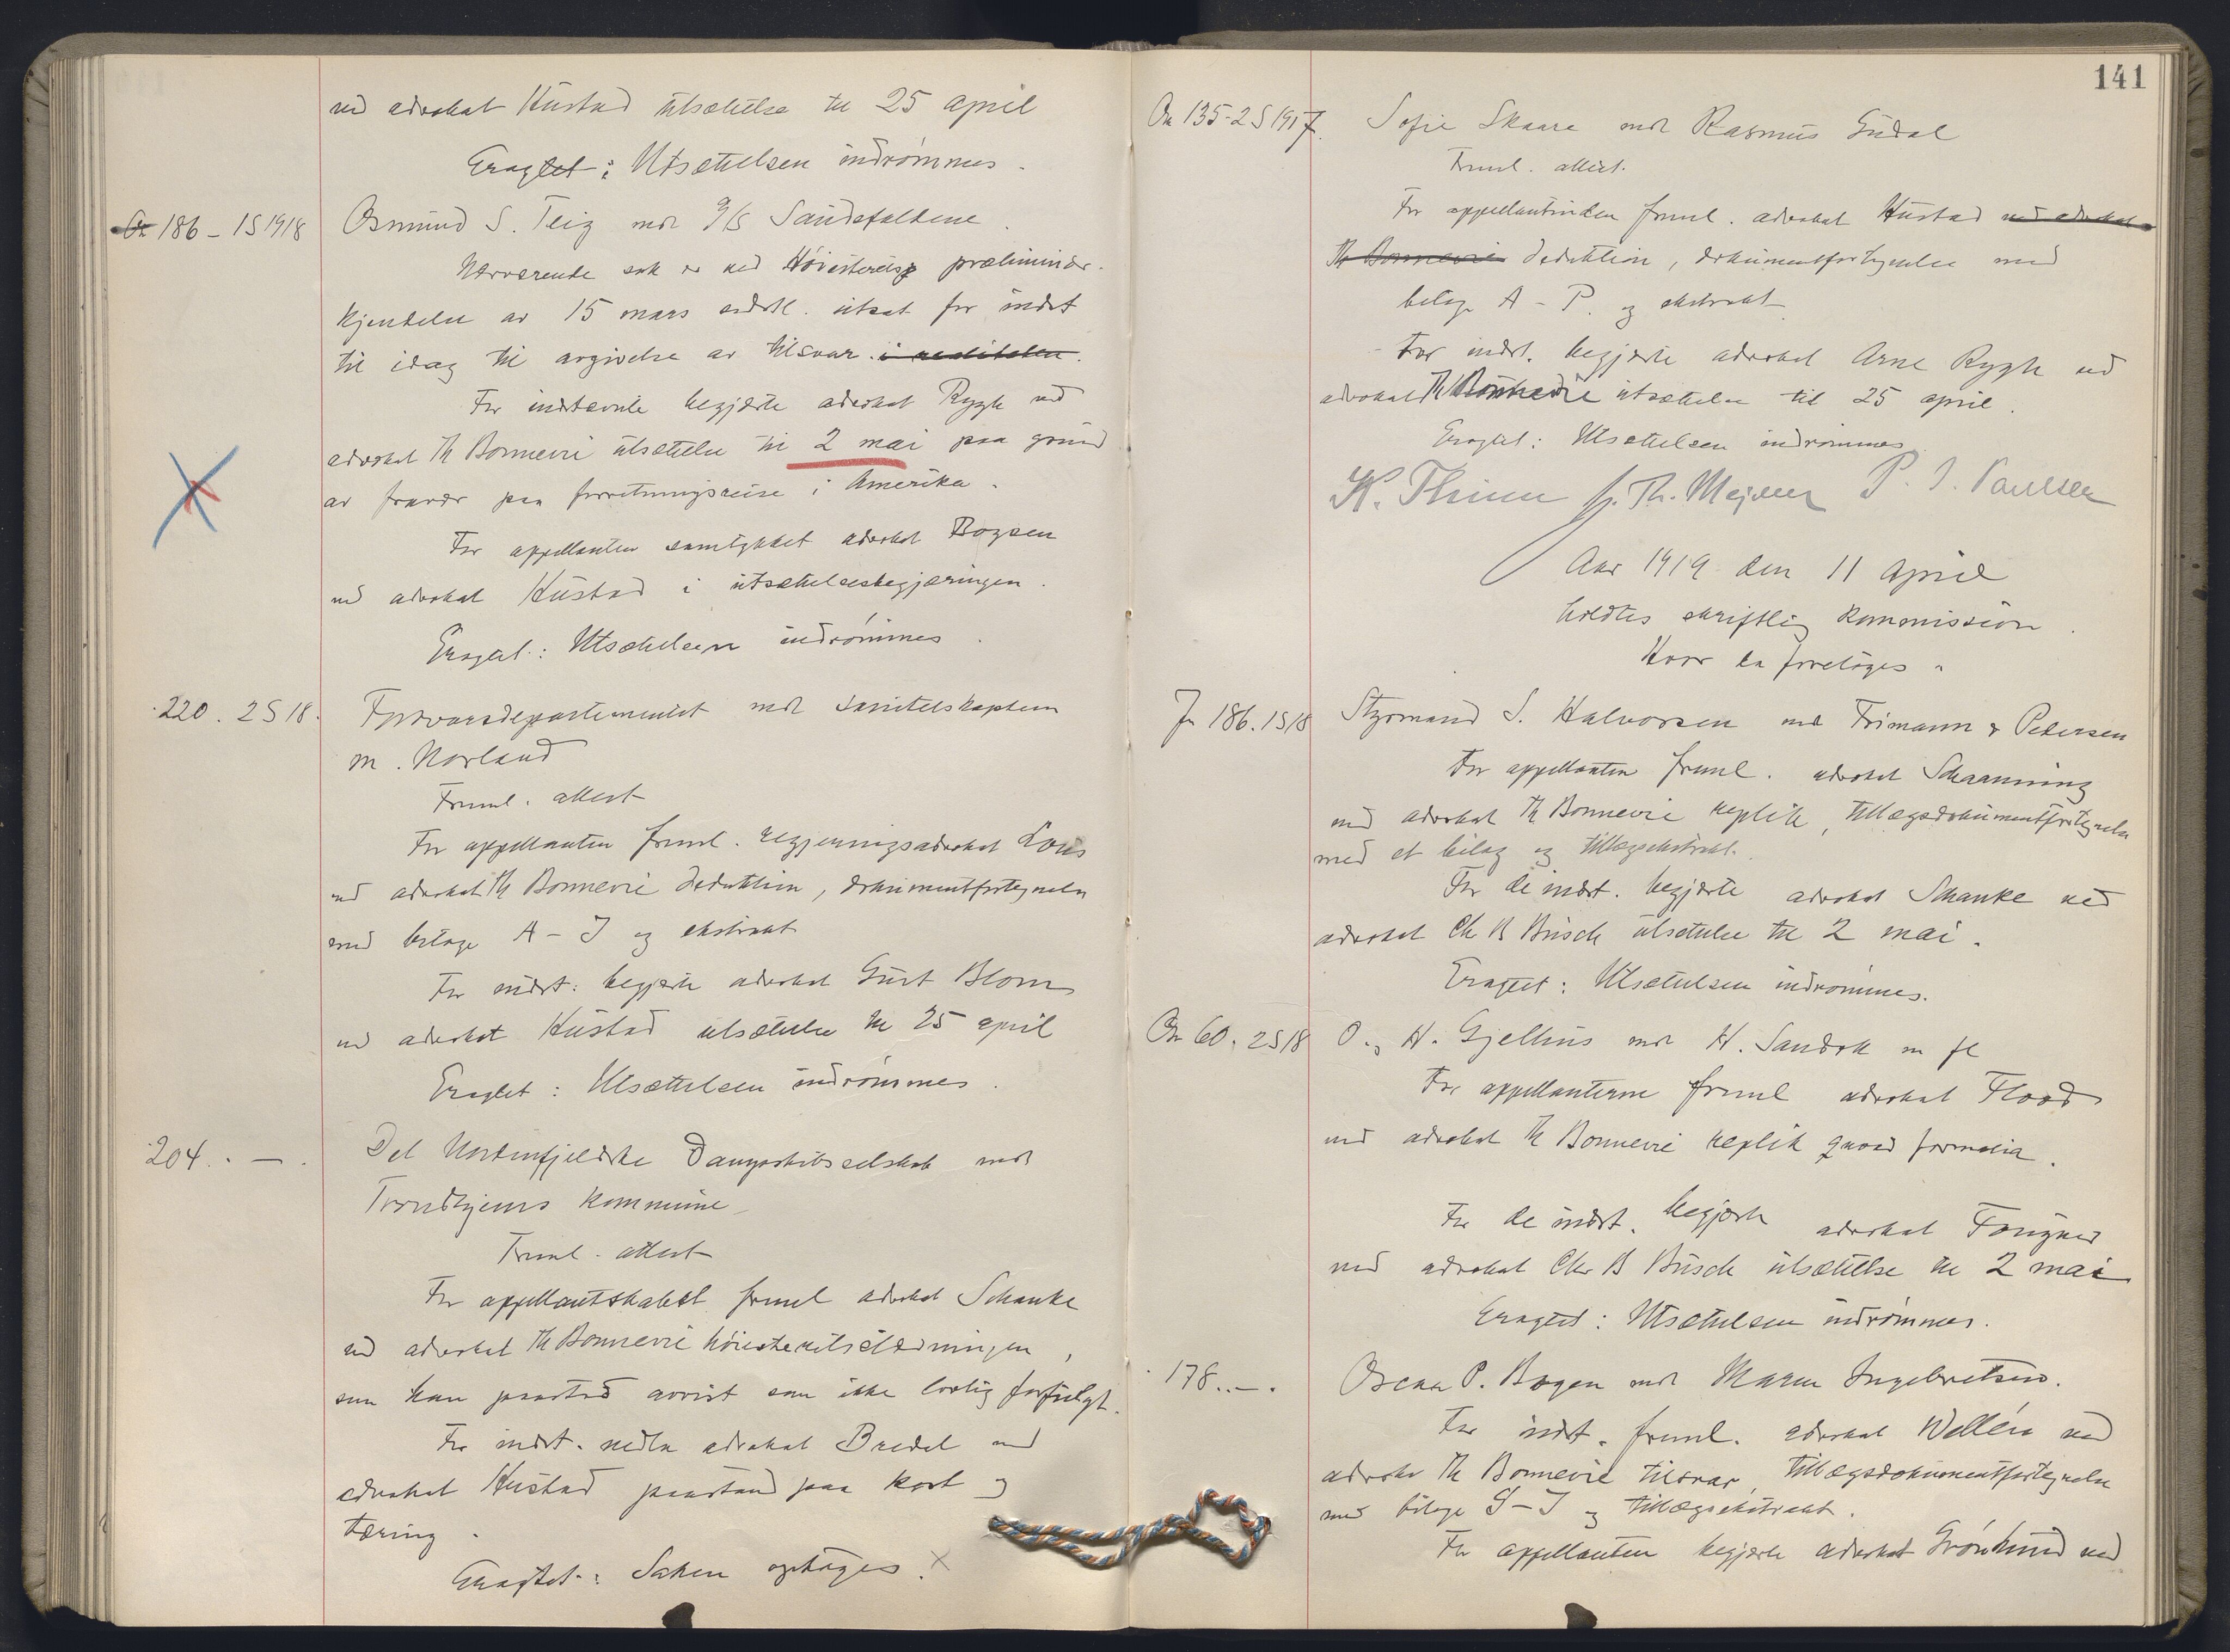 ved advokat Hustad utsættelse til 25 april
Eragtet: Utsættelsen indrømmes.
186 – 1S 1918 Osmund S. Teig mot A/S Sandefaldene.
Nærværende sak er ved Høiesterets præliminær-
kjendelse av 15 mars sidstl. utsat for indst
til idag til avgivelse av tilsvar i realiteten.
For indstevnte begjærte advokat Rygh ved
advokat Th Bonnevie utsættelse til 2 mai paa grund
av fravær paa forretningsreise i Amerika.
For appellanten samtykket advokat Boysen
ved advokat Hustad i utsættelsesbegjæringen.
Eragtet: Utsættelsen indrømmes.
220. 2S 18. Forsvarsdepartementet mot sanitetskaptein
M. Norland
Freml. attest
For appellanten freml. regjeringsadvokat
ved advokat Th Bonnevie deduktion, dokumentfortegnelse
med bilage A – J og ekstrakt
For indst. begjærte advokat Blom
ved advokat Hustad utsættelse til 25 april
Eragtet: Utsættelsen indrømmes.
204. – . Det Nordenfjeldske Dampskibsselskab mot
Trondhjems kommune
Freml. attest
For appellantskabet freml advokat Schanke
ved advokat Th Bonnevie høiesteretsstævningen,
som han paastod avvist som ikke lovlig forfulgt.
For indst. nedla advokat Bredal ved
advokat Hustad paastand paa kost og
tæring.
Eragtet: Saken optages. X
141
On 135-2S 1917. Sofie Skaare mot Rasmus Gudal
Freml. attest.
For appellantinden freml. advokat Hustad ved advokat
Th Bonnevie deduktion, dokumentfortegnelse med
bilage A – P. og ekstrakt
For indst. begjærte advokat Arne Rygh ved
advokat Th Bonnevie utsættelse til 25 april.
Eragtet: Utsættelsen indrømmes
P. I. Paulsen
Aar 1919 den 11 april
holdtes skriftlig kommission.
Hvor da foretoges:
186. 1S18 Styrmand S. Halvorsen mot Frimann & Pedersen
For appellanten freml. advokat Schaanning
ved advokat Th Bonnevie replik, tillægsdokumentfortegnelse
med et bilag og tillægsekstrakt.
For de indst. begjærte advokat Schanke ved
advokat Chr B Busch utsættelse til 2 mai.
Eragtet: Utsættelsen indrømmes.
On 60. 2S18 O. H. Gjellhus mot H. Sandok m fl
For appellanterne freml advokat Flood
ved advokat Th Bonnevie replik quoad formalia.
For de indst. begjærte advokat Fougner
ved advokat Chr B Busch utsættelse til 2 mai
Eragtet: Utsættelsen indrømmes.
178. – . Oscar P. Bogen mot Maren Ingebretsen.
For indst. freml. advokat Wellén ved
advokat Th Bonnevie tilsvar, tillægsdokumentfortegnelse
med bilage S – J og tillægsekstrakt.
For appellanten begjærte advokat Grønlund ved